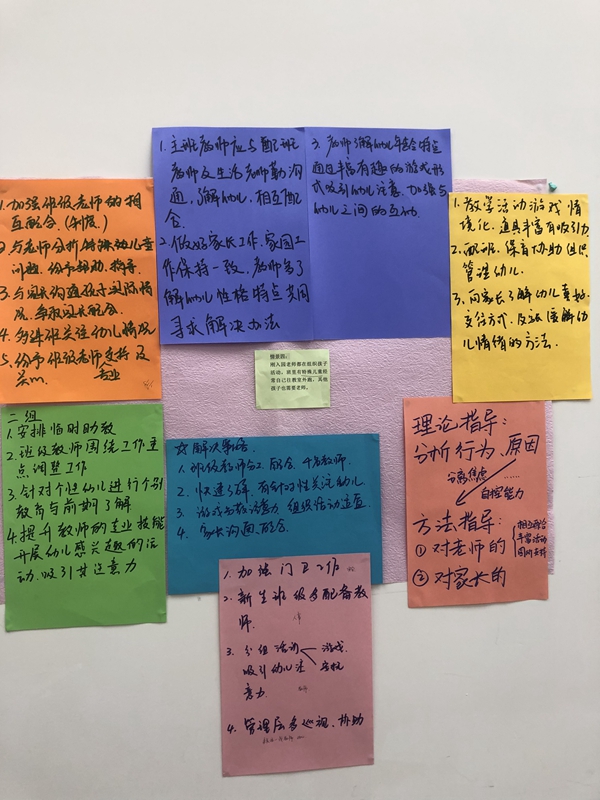 1.加强班级老师的相
互配合.(制度)
2.与老师分析特殊幼儿童
问题,给予帮助、指导.
3.与家长沟通孩子实际情
况,争取家长配合.
4.多进班关注幼儿情况
5.给予班级老师支持及
专业
1.主班教师应与配班
教师及生活老师勤沟
通,了解幼儿,相互配
合.
2.做好家长工作,家园工
作保持一致,教师多了
解幼儿性格特点共同
寻求解决办法
3.教师了解幼儿年龄特点
通过丰富有趣的游戏形
式吸引幼儿注意.加强与
幼儿之间的互动.
1.教学活动游戏情
境化,道具丰富有吸引力
2.配班、保育协助组织
管理幼儿.
3.向家长了解幼儿喜好、
交往方式,及缓解幼
儿情绪的方法.
情景四、
刚入园老师都在组织孩子
活动,班里有特殊儿童经
常自己往教室外跑,其他
孩子也需要老师。
二组
1.安排临时助教
2.班级教师围绕工作重
点调整工作
3.针对个性幼儿进行个别
教育与前期了解
4.提升教师的专业技能
开展幼儿感兴趣的活
动.吸引其注意力
☆解决策略
1.班级教师分工配合
2.快速了解、有针对性关注幼儿
3.游戏
4.家长沟通配合.
理论指导:
分析行为、原因
分离焦虑 ……
自控能力
方法指导:
①对老师的
②对家长的
丰富活动
1.加强门卫工作
2.新生班级多配备教
师.
3.分组活动 游戏.
吸引幼儿注
意力.
4.管理层多巡视、协助